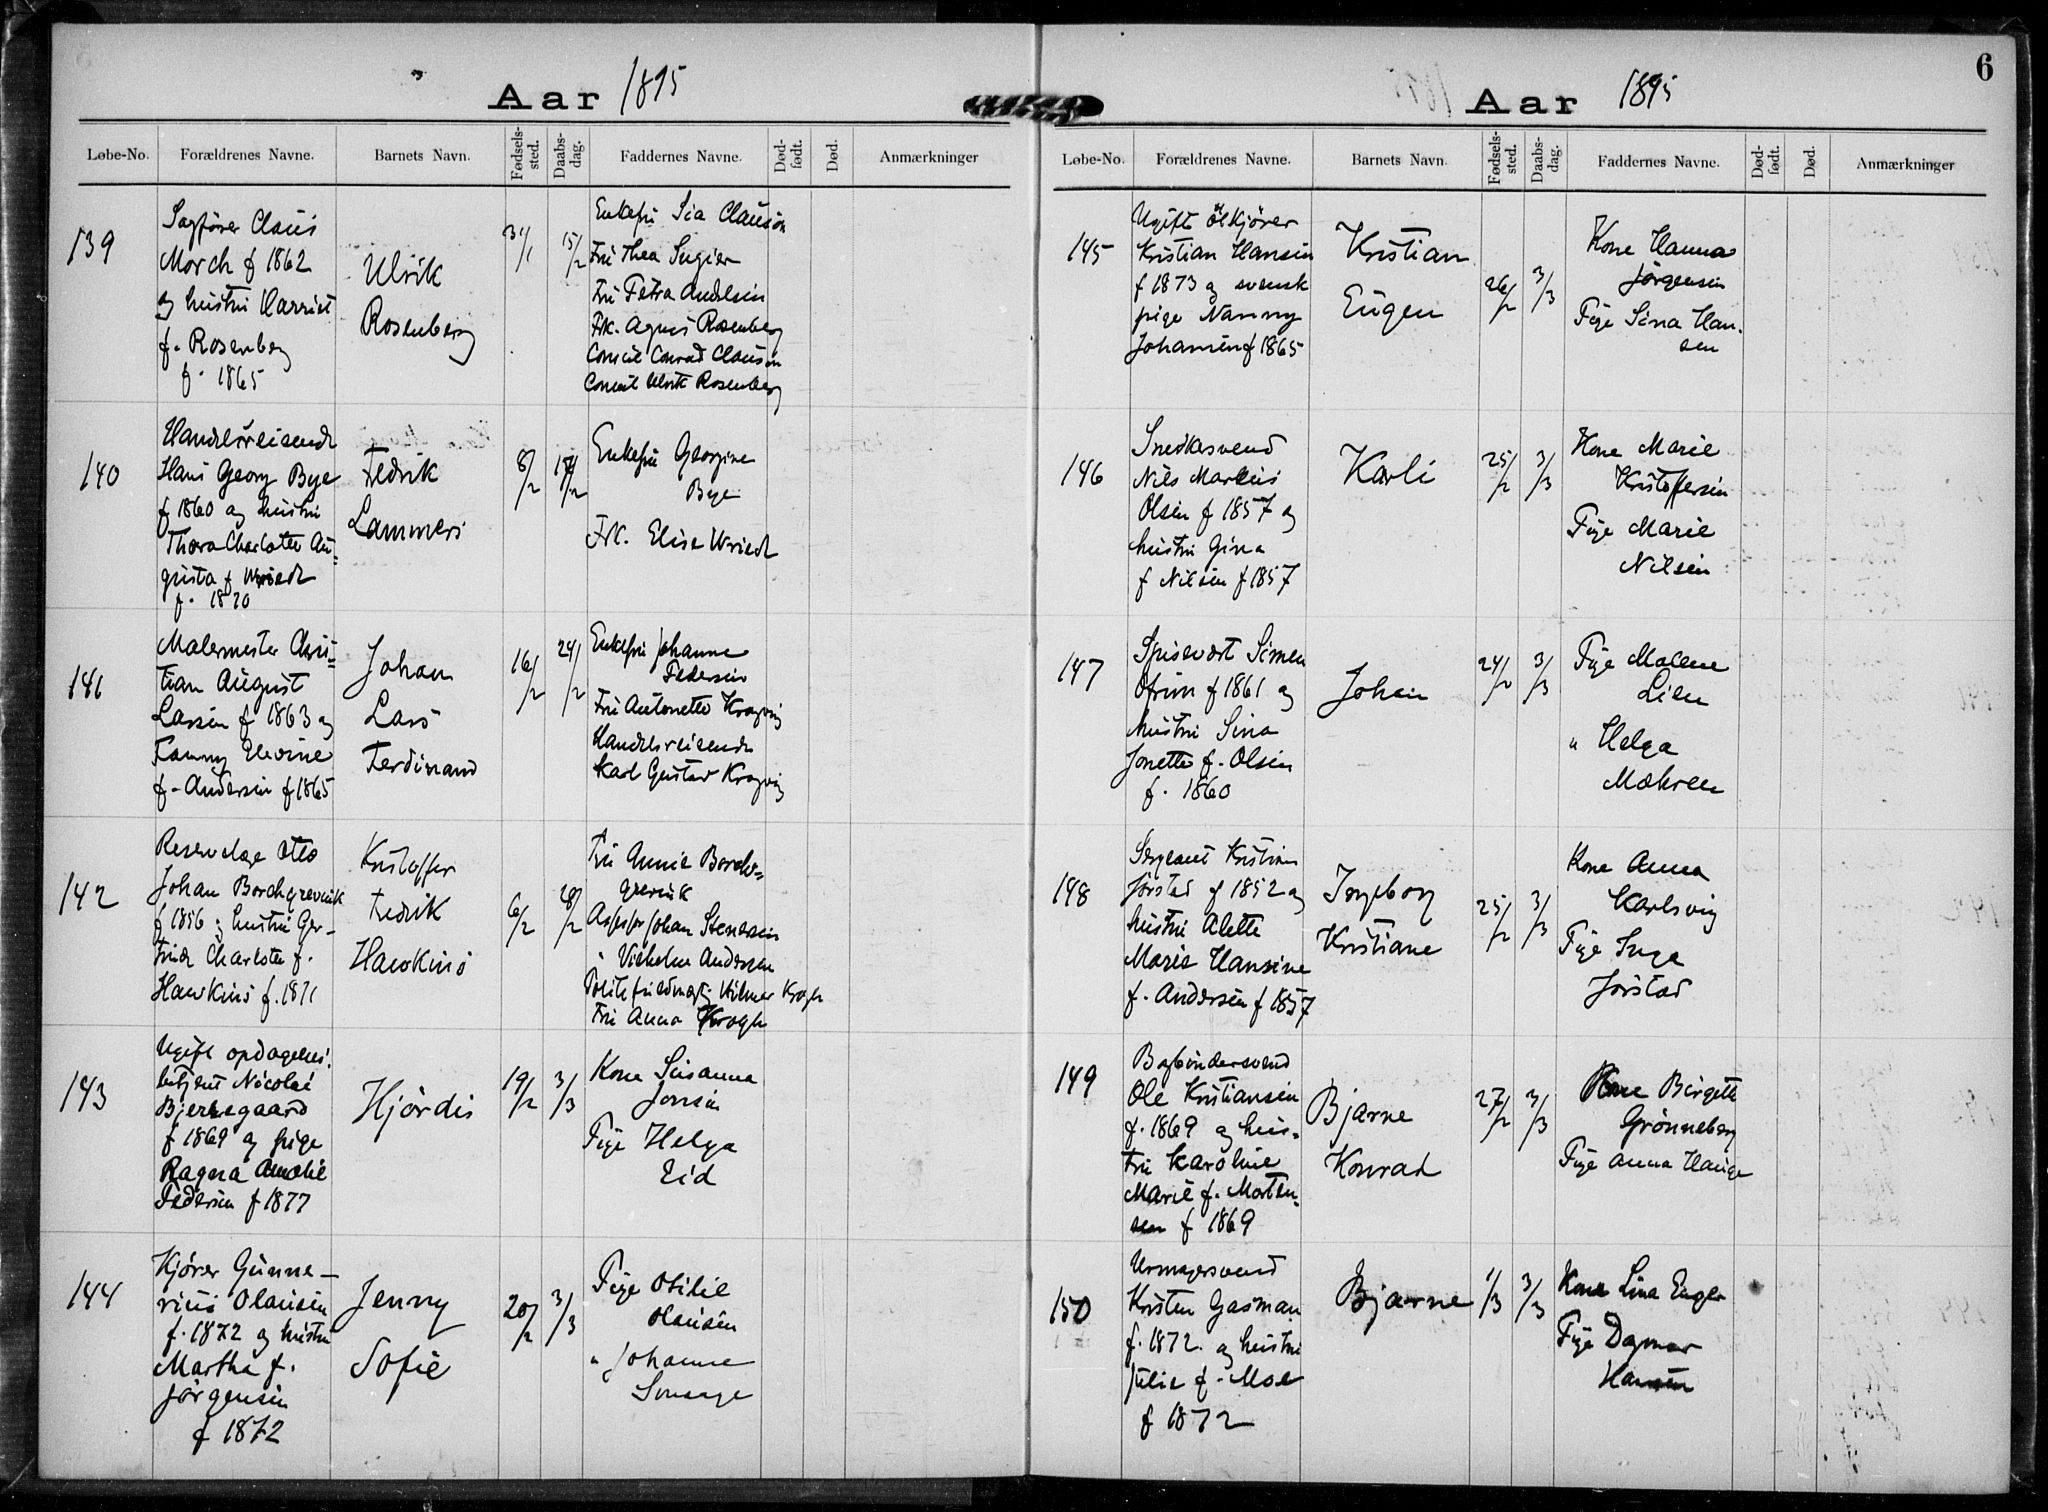 Aar 1895
Løbe-No. Forældrenes Navne. Barnets Navn. Fødsels-sted. Daabs-dag. Faddernes Navne. Død-født. Død. Anmærkninger
139
Sagfører Claus
Morch f 1862
og hustru Harriet
f. Rosenberg
f. 1865
Ulrik
Rosenberg
31/1
15/2
Enkefru Sia Clausen
Fru Thea
Fru Petra Andersen
Frk. Agnes Rosenberg
Consul Conrad Clausen
Consul Ulrik Rosenberg
140
Handelsreisende
Hans Georg Bye
f 1860 og hustru
Thora Charlotte Au-
gusta f Wriedt
f. 1870
Fedrik
Lammers
8/2
17/2
Enkefru Georgine
Bye
Frk. Elise Wriedt
141
Malermester Chris-
tian August
Larsen f 1863 og
Fanny Elevine
f. Andersen f 1865
Johan
Lars
Ferdinand
16/2
24/2
Enkefru Johanne
Pedersen
Fru Antonette Kragvig
Handelsreisende
Karl Gustav Kragvig
142
Reservelæge Otto
Johan Borchgrevink
f 1856 og hustru Ger-
trude Charlotte f.
Hawkins f. 1871
Kristoffer
Fedrik
Hawkins
6/2
28/2
Fru Annie Borch-
grevink
Assessor Johan Stenersen
" Vilhelm Andersen
Politifuldmægtig Vilmer Krogh
Fru Anna Krogh
143
Ugift opdagelses-
betjent Nicolai
Bjerkegaard
f 1869 og pige
Ragna Amalie
Pedersen f 1877
Hjørdis
19/2
3/3
Kone Susanna
Jensen
Pige Helga
Eid
144
Kjører Gunne-
rius Olausen
f. 1872 og hustru
Martha f.
Jørgensen
f 1872
Jenny
Sofie
20/2
3/3
Pige Otilie
Olausen
" Johanne
6
Aar 1895
Løbe-No. Forældrenes Navne. Barnets Navn. Fødsels-sted. Daabs-dag. Faddernes Navne. Død-født. Død. Anmærkninger
145
Ugift Ølkjører
Kristian Hansen
f 1873 og svensk
pige Nanny
Johansen f 1865
Kristian
Eugen
26/2
3/3
Kone Hanna
Jørgensen
Pige Sina Han-
sen
146
Snedkersvend
Nils Markus
Olsen f 1857 og
hustru Gina
f Nilsen f 1857
Karli
25/2
3/3
Kone Marie
Kristoffersen
Pige Marie
Nilsen
147
Spisevært Simen
f 1861 og
hustru Sina
Jonette f. Olsen
f. 1860
Johan
24/2
3/3
Pige Malene
Lien
" Helga
Mæhreen
148
Sergeant Kristian
Jørstad f 1852 og
hustru Alette
Marie Hansine
f. Andersen f 1857
Ingeborg
Kristiane
25/2
3/3
Kone Anna
Karlsvig
Pige Inga
Jørstad
149
Bogbindersvend
Ole Kristiansen
f. 1869 og hus-
tru Karoline
Marie f. Morten-
sen f 1869
Bjarne
Konrad
27/2
3/3
Kone Birgitte
Grønneberg
Pige Anna Hauge
150
Urmagersvend
Kristen Gasman
f. 1872 og hustru
Julie f. Moe
f 1872
Bjarne
1/3
3/3
Kone Lina Enger
Pige Dagmar
Hansen